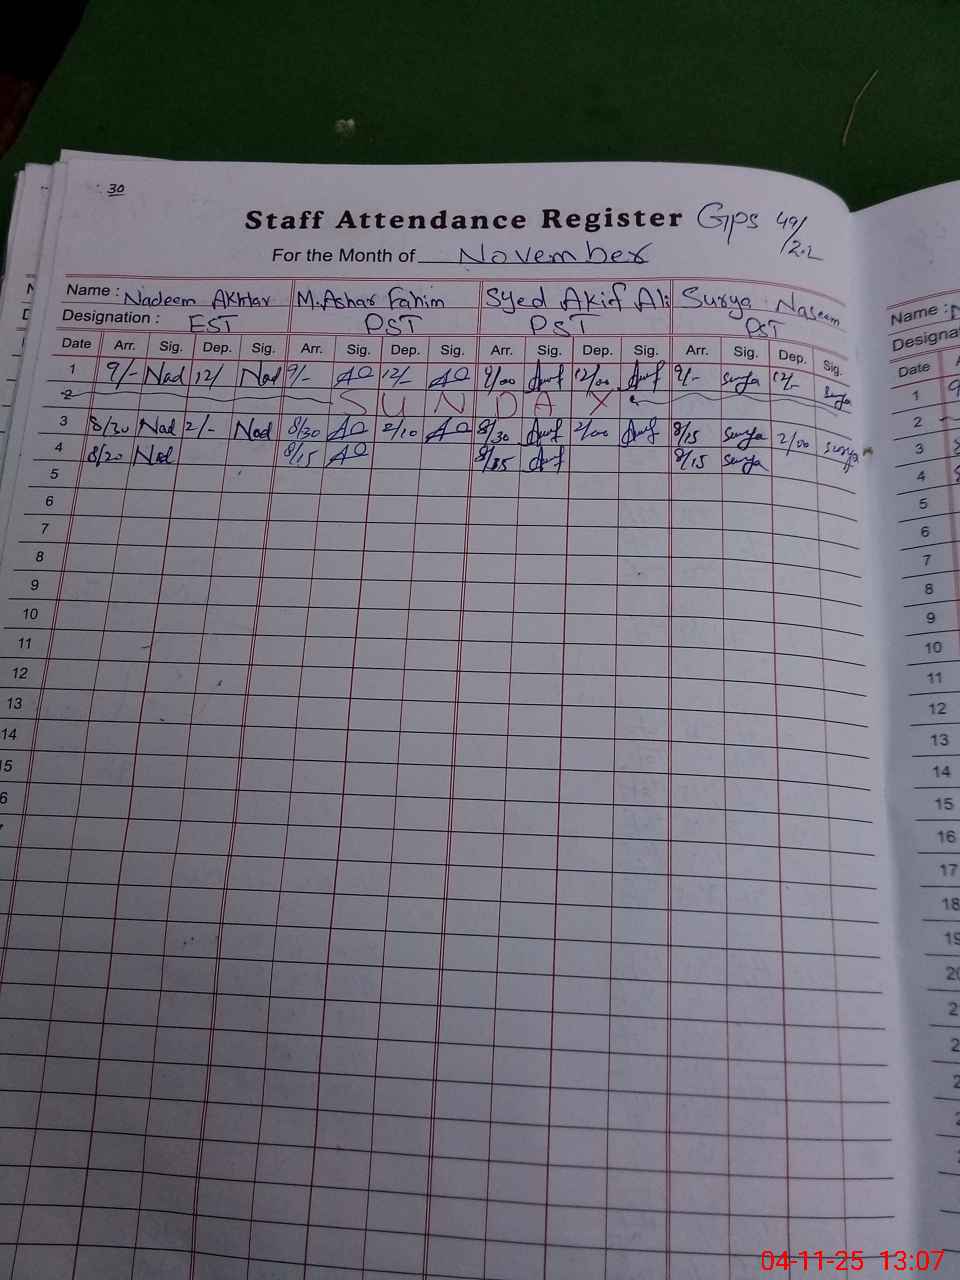 30
Staff Attendance Register Gps 49/2.L
For the Month of November
Name : Nadeem Akhtar M. Ashar Fahim Syed Akif Ali Surya Naseem
Designation : EST PST PST PST
Date Arr. Sig. Dep. Sig. Arr. Sig. Dep. Sig. Arr. Sig. Dep. Sig. Arr. Sig. Dep. Sig.
1 9/- Nad 12/ Nad 9/- 12/- 9/00 12/00 9/- Surya 12/- Surya
2 SUNDAY
3 8/30 Nad 2/- Nad 8/30 2/10 8/30 2/00 8/15 Surya 2/00 Surya
4 8/20 Nad 8/15 8/15 8/15 Surya
5
6
7
8
9
10
11
12
13
14
15
6
Name :
Designat
Date
1
2
3
4
5
6
7
8
9
10
11
12
13
14
15
16
17
18
19
20
2
2
2
04-11-25 13:07